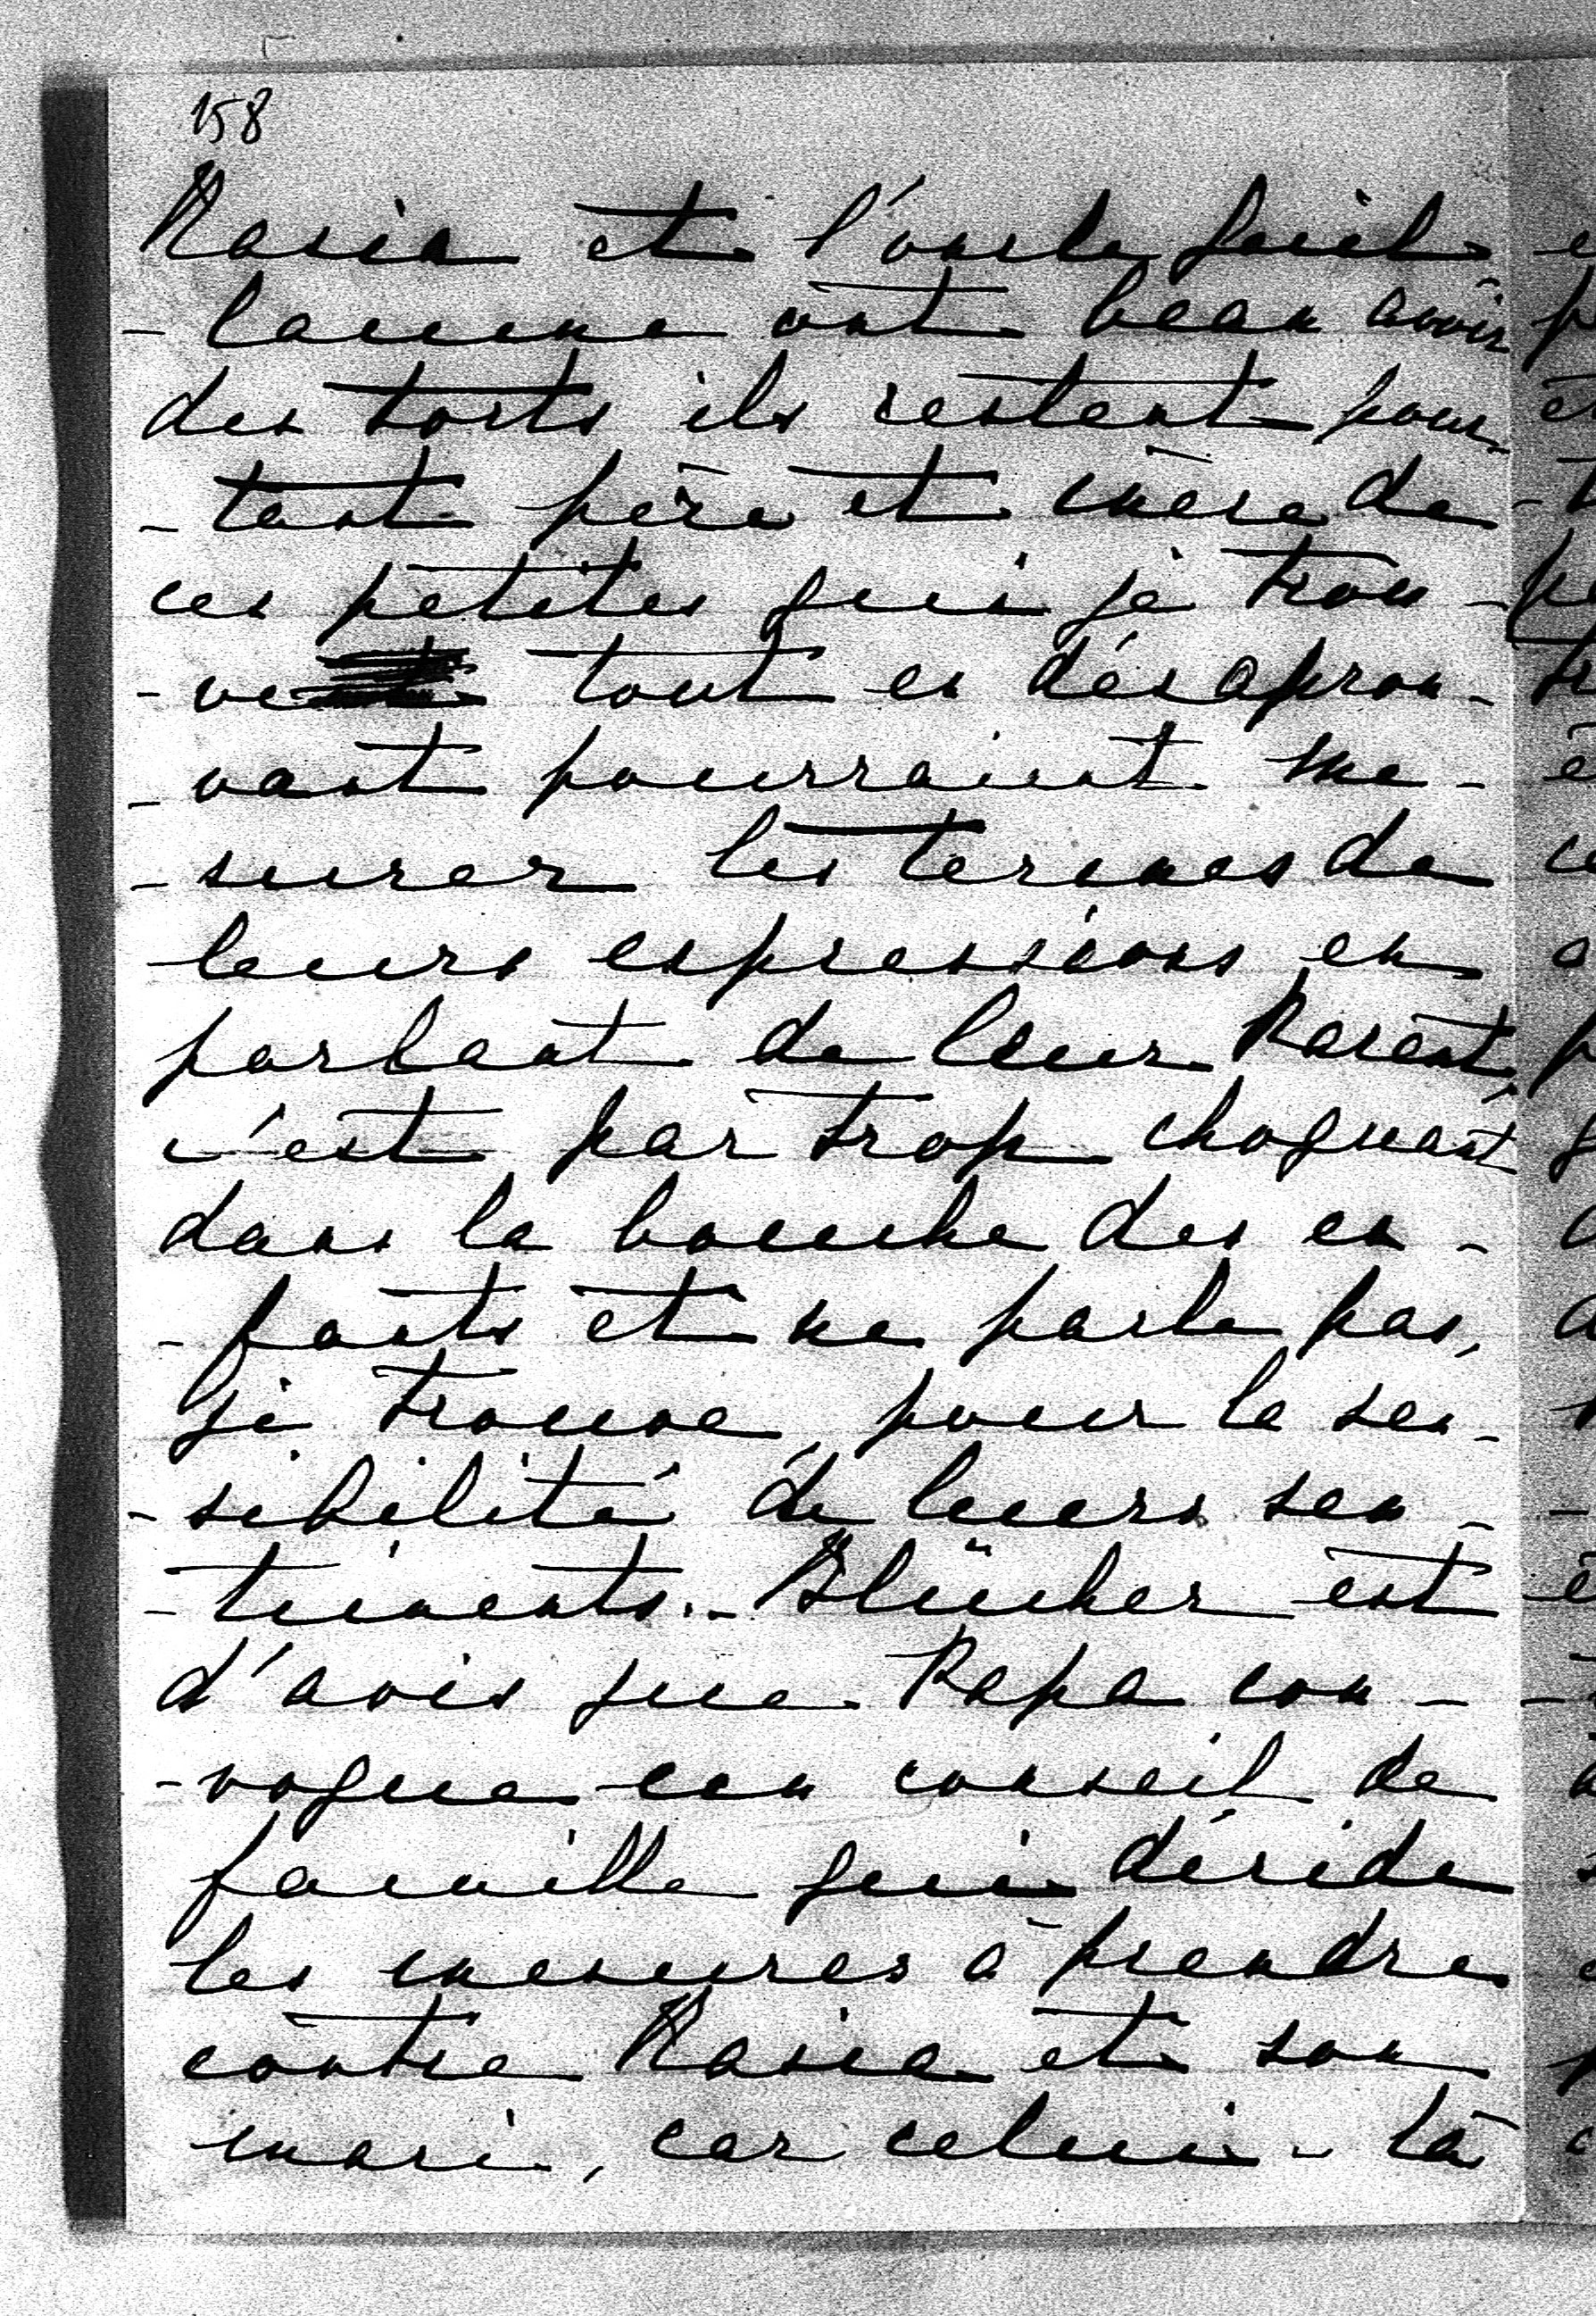 158
Rasia et l'oncle Guil-
-laume ont beau avoir
des torts ils restent pour-
-tant père et mère de
ces petites qui je trou-
-ve tout en désaprou-
-vant pourraient me-
-surer les termes de
leurs expressions en
parlant de leur Parent,
c'est par trop choquant
dans la bouche des en-
-fants et ne parle pas,
je trouve, pour la sen-
-sibilité de leurs sen-
-timents.. Blücher est
d'avis que Papa con-
-voque un conseil de
famille qui décide
les mesures à prendre
contre Rasia et son
mari, car celui-là